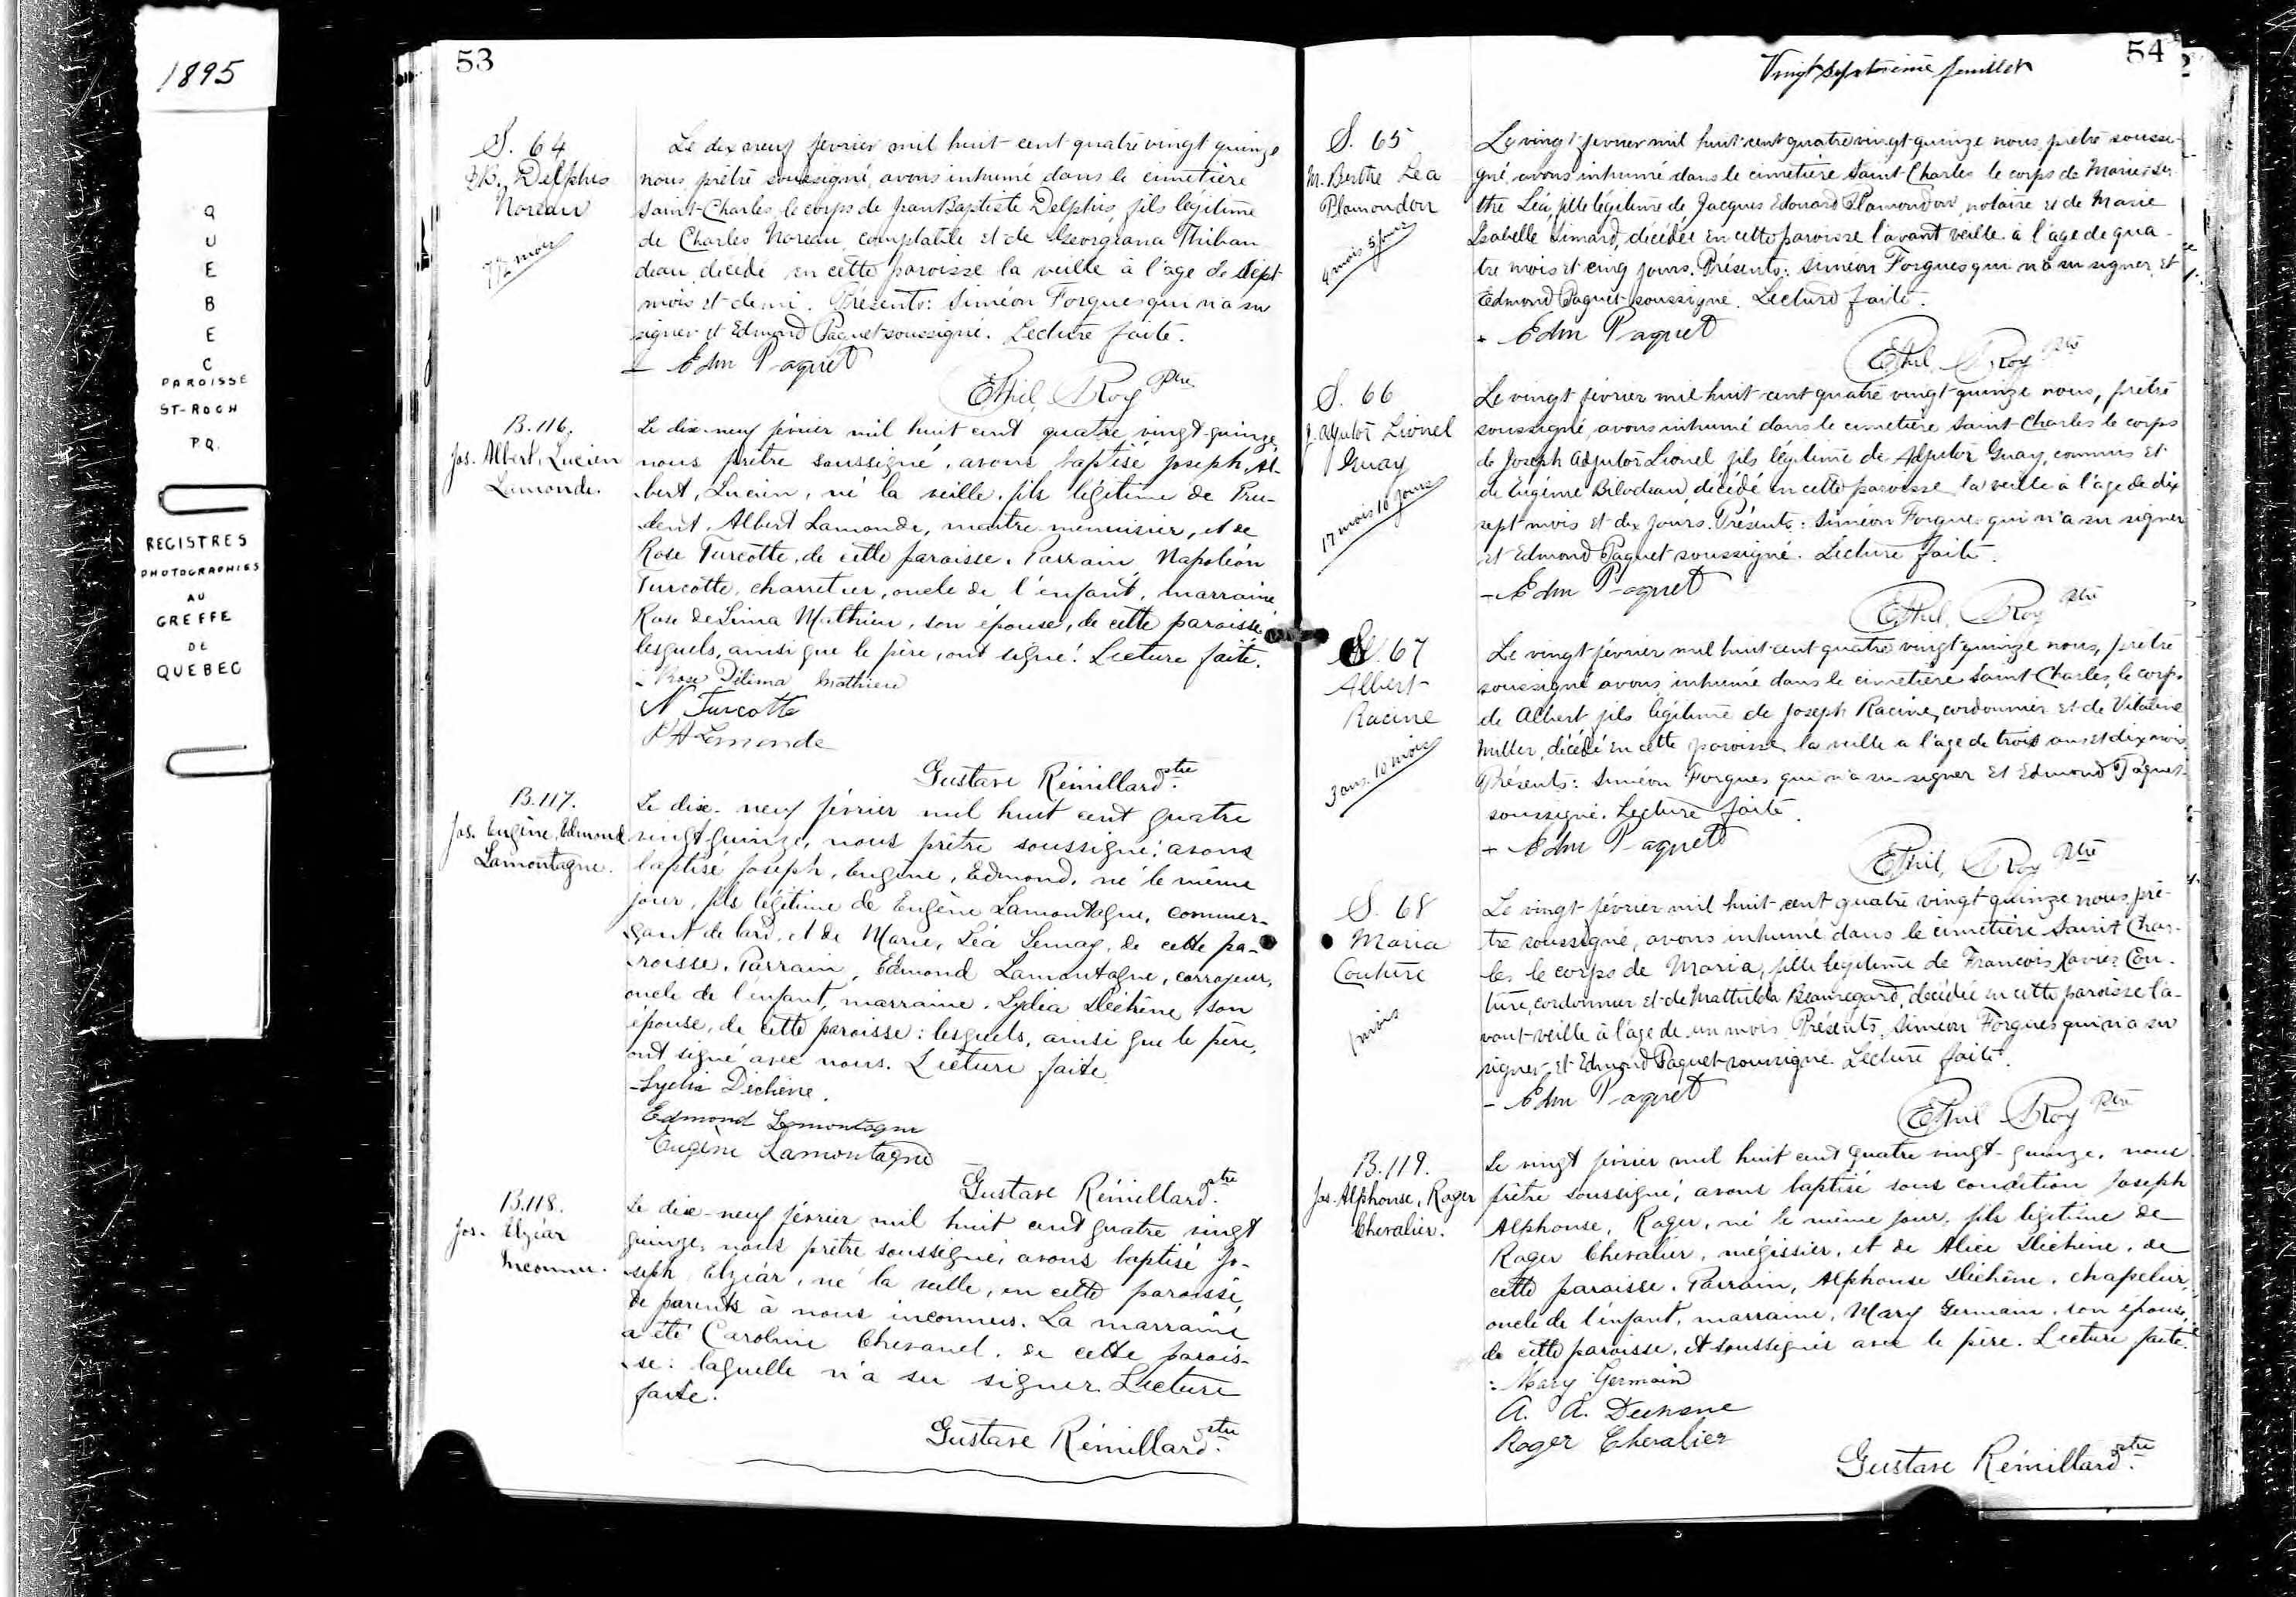 1895
QUEBEC
PAROISSE
ST-ROCH
P.Q.
REGISTRES
PHOTOGRAPHIES
AU
GREFFE
DE
QUEBEC
53
S. 64
J.B. Delphis
Noreau
7 1/2 mois
Le dix neuf février mil huit-cent-quatre vingt quinze
nous, prêtre soussigné, avons inhumé dans le cimetière
Saint-Charles, le corps de Jean Baptiste Delphis, fils légitime
de Charles Noreau, comptable et de Georgeana Thibau
deau, décédé en cette paroisse la veille à l'age de sept
mois et demi. Présents: Siméon Forgues qui n'a su
signer et Edmond Paquet soussigné. Lecture faite.
- Edm Paquet
Ethil. Roy Ptre
B.116.
Jos. Albert, Lucien
Lamonde.
Le dix-neuf février mil huit cent quatre vingt-quinze,
nous prêtre soussigné, avons baptisé Joseph, Al-
bert, Lucien, né la veille, fils légitime de Pru-
dent, Albert Lamonde, maître-menuisier, et de
Rose Turcotte, de cette paroisse. Parrain, Napoléon
Turcotte, charretier, oncle de l'enfant, marraine
Rose de Lima Mathieu, son épouse, de cette paroisse
lesquels, ainsi que le père, ont signé. Lecture faite.
- Rose Délima Mathieu
N Turcotte
P A Lamonde
Gustave Rémillard ptre.
B.117.
Jos. Eugène, Edmond
Lamontagne.
Le dix-neuf février mil huit cent quatre
vingt quinze, nous prêtre soussigné, avons
baptisé Joseph, Eugène, Edmond, né le même
jour, fils légitime de Eugène Lamontagne, commer-
çant de lard, et de Marie, Léa Lemay, de cette pa-
roisse. Parrain, Edmond Lamontagne, corroyeur,
oncle de l'enfant, marraine, Lydia Dechêne, son
épouse, de cette paroisse: lesquels, ainsi que le père,
ont signé avec nous. Lecture faite
- Lydia Dechène.
Edmond Lamontagne
Eugène Lamontagne
Gustave Rémillard ptre.
B.118.
Jos. Elzéar
Inconnu.
Le dix-neuf février mil huit cent quatre vingt
quinze, nous prêtre soussigné, avons baptisé Jo-
seph Elzéar, né la veille, en cette paroisse,
de parents à nous inconnus. La marraine
a été Caroline Chevanel, de cette parois-
se: laquelle n'a su signer. Lecture
faite.
Gustave Rémillard ptre.
54
Vingt septième feuillet
S. 65
M. Berthe Lea
Plamondon
4 mois 5 jours
Le vingt février mil huit cent quatre vingt-quinze nous, prêtre soussi-
gné, avons inhumé dans le cimetière Saint-Charles le corps de Marie Ber
the Léa, fille légitime de Jacques Edouard Plamondon, notaire et de Marie
Isabelle Simard, décédée en cette paroisse l'avant veille à l'age de qua-
tre mois et cinq jours. Présents: Siméon Forgues qui n'a su signer, et
Edmond Paquet soussigné. Lecture faite.
- Edm Paquet
Ethil. Roy Ptre
S. 66
J. Adjutor Lionel
Guay
17 mois 10 jours
Le vingt février mil huit-cent-quatre vingt-quinze nous, prêtre
soussigné, avons inhumé dans le cimetière Saint-Charles le corps
de Joseph Adjutor Lionel fils légitime de Adjutor Guay, commis et
de Eugénie Bilodeau, décédé en cette paroisse, la veille à l'age de dix
sept mois et dix jours. Présents: Siméon Forgues qui n'a su signer
et Edmond Paquet soussigné. Lecture faite.
- Edm Paquet
Ethil. Roy Ptre
S. 67
Albert
Racine
3 ans 10 mois
Le vingt février mil huit cent quatre vingt quinze nous, prêtre
soussigné avons inhumé dans le cimetière Saint-Charles, le corps
de Albert fils légitime de Joseph Racine, cordonnier et de Vitaline
Miller, décédé en cette paroisse, la veille a l'age de trois ans et dix mois.
Présents: Siméon Forgues qui n'a su signer et Edmond Paquet
soussigné. Lecture faite.
- Edm Paquet
Ethil. Roy Ptre
S. 68
Maria
Couture
1 mois
Le vingt février mil huit-cent quatre vingt quinze nous, prê-
tre soussigné, avons inhumé dans le cimetière Saint Char-
les le corps de Maria, fille légitime de François Xavier Cou-
ture, cordonnier et de Mathilda Beauregard, décédée en cette paroisse l'a-
vant-veille à l'age de un mois. Présents, Siméon Forgues qui n'a su
signer, et Edmond Paquet soussigné. Lecture faite.
- Edm Paquet
Ethil Roy Ptre
B.119.
Jos. Alphonse, Roger
Chevalier.
Le vingt février mil huit cent quatre vingt-quinze, nous
prêtre soussigné, avons baptisé sous condition Joseph
Alphonse, Roger, né le même jour, fils légitime de
Roger Chevalier, mégissier, et de Alice Dechêne, de
cette paroisse. Parrain, Alphonse Dechêne, chapelier,
oncle de l'enfant, marraine, Mary Germain, son épouse,
de cette paroisse, et soussignés avec le père. Lecture faite.
: Mary Germain
A. A. Dechene
Roger Chevalier
Gustave Rémillard ptre.